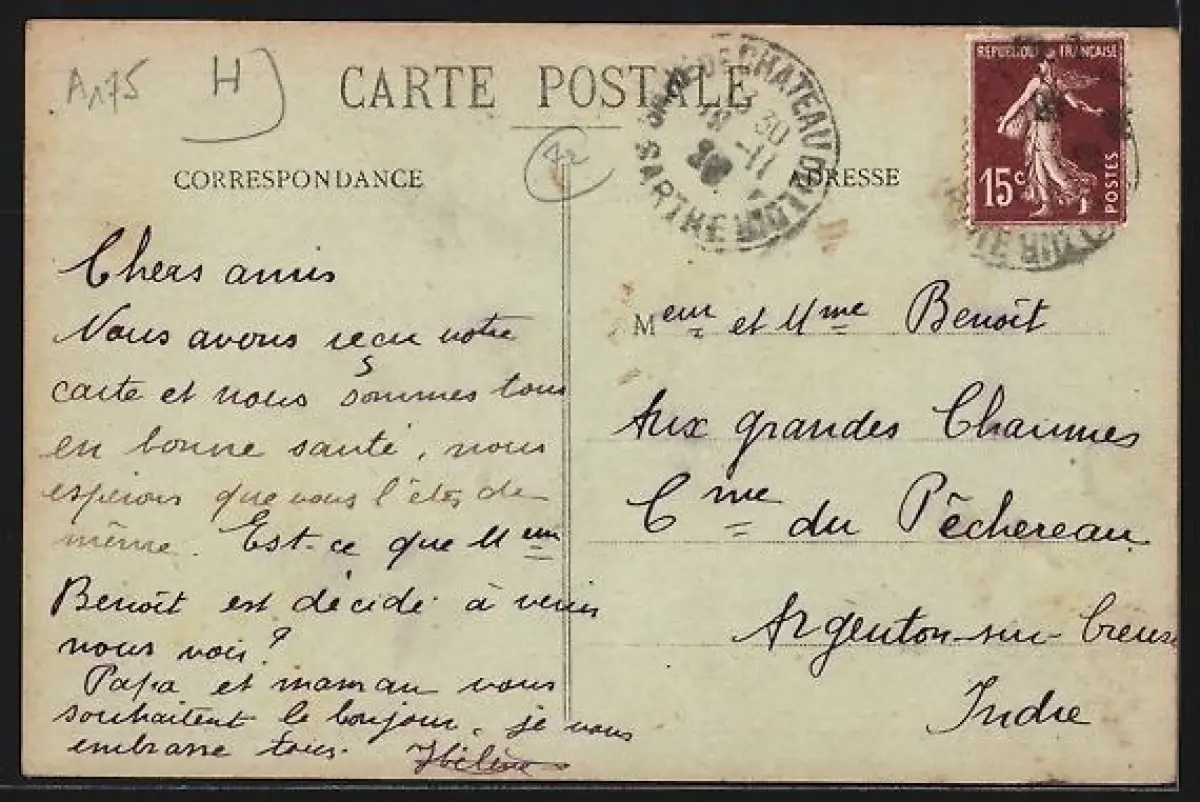 A175
H
CARTE POSTALE
42
CORRESPONDANCE
ADRESSE
REPUBLIQUE FRANCAISE
15c
POSTES
CHATEAU DU LOIR
SARTHE
30
-11
Chers amis
Nous avons reçu votre
carte et nous sommes tous
en bonne santé, nous
espérons que vous l'êtes de
même. Est-ce que Meur
Benoît est décidé à venir
nous voir?
Papa et maman vous
souhaitent le bonjour, je vous
embrasse tous. Hélène
Meur et Mme Benoît
Aux grandes Chaumes
Cme du Pêchereau
Argenton-sur-Creuse
Indre